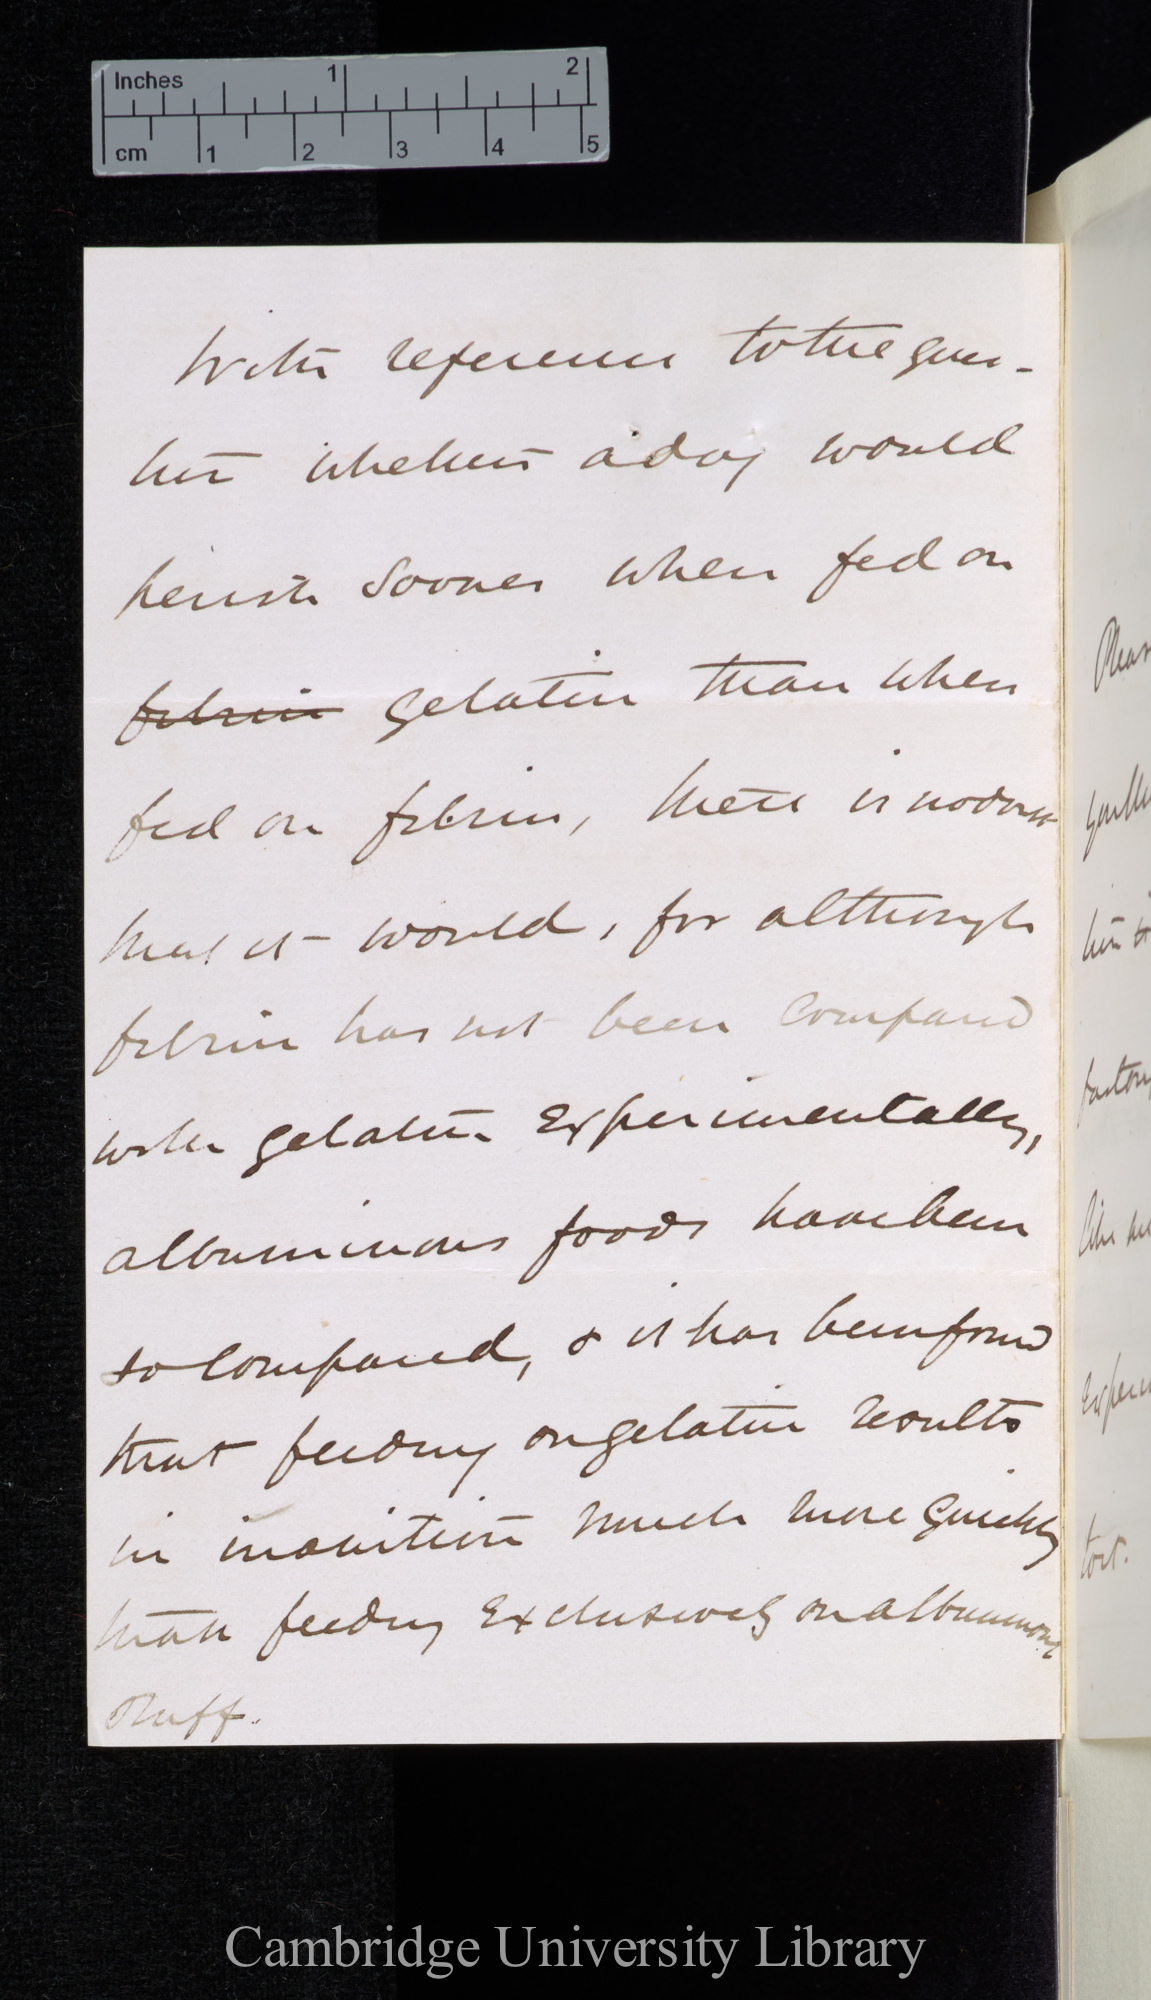 Inches 1 2
cm 1 2 3 4 5
With reference to the ques-
tion whether a dog would
perish sooner when fed on
fibrin gelatin than when
fed on fibrin, there is no doubt
that it would, for although
fibrin has not been compared
with gelatin experimentally,
albuminous foods have been
so compared, & it has been found
that feeding on gelatin results
in inanition much more quickly
than feeding exclusively on albuminous
stuff.
Cambridge University Library